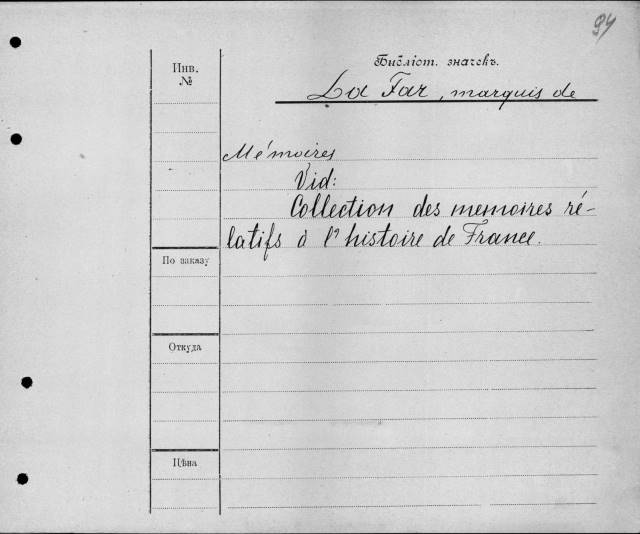 94
Библіот. значекъ.
Инв.
№
La Far, marquis de
Mémoires
Vid:
Collection des memoires ré-
latifs à l'histoire de France.
По заказу
Откуда
Цѣна